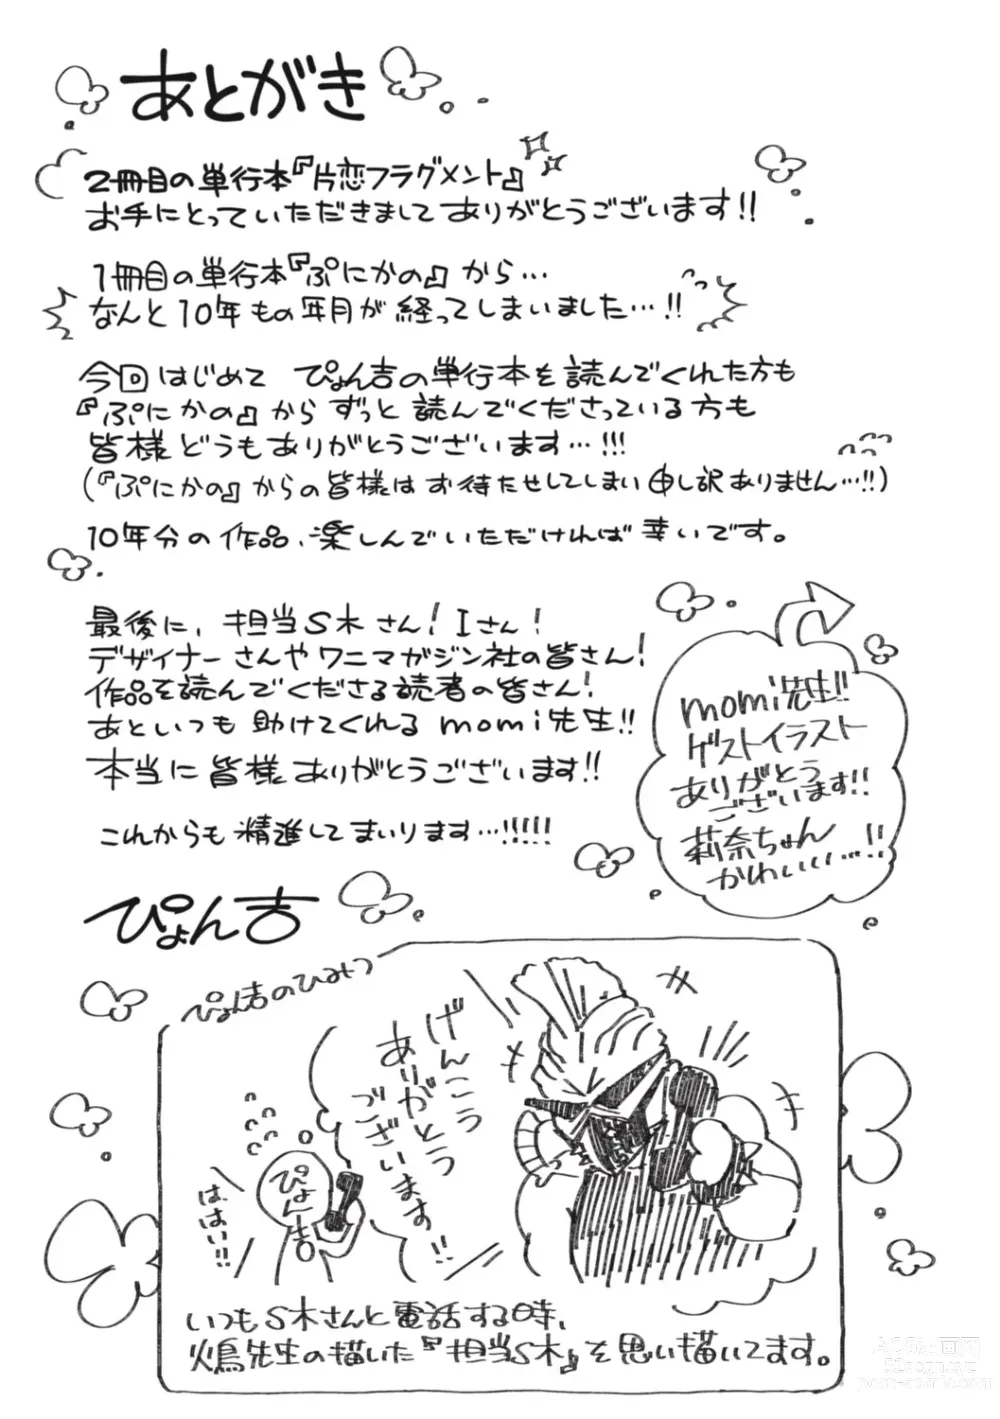 あとがき
2冊目の単行本『片恋フラグメント』
お手にとっていただきましてありがとうございます!!
1冊目の単行本『ぷにかの』から…
なんと10年もの年月が経ってしまいました…!!
今回はじめて ぴょん吉の単行本を読んでくれた方も
『ぷにかの』からずっと読んでくださっている方も
皆様どうもありがとうございます…!!!
(『ぷにかの』からの皆様はお待たせしてしまい申し訳ありません…!!)
10年分の作品、楽しんでいただければ幸いです。
最後に、担当S木さん! Iさん!
デザイナーさんやワニマガジン社の皆さん!
作品を読んでくださる読者の皆さん!
あといつも助けてくれるmomi先生!!
本当に皆様ありがとうございます!!
これからも精進してまいります…!!!!!
ぴょん吉
momi先生!!
ゲストイラスト
ありがとう
ございます!!
莉奈ちゃん
かわいい…!!
ぴょん吉のひみつ
げんこう
ありがとう
ございます!!
ぴょん吉
は、はい!!
いつもS木さんと電話する時、
火鳥先生の描いた『担当S木』を思い描いてます。